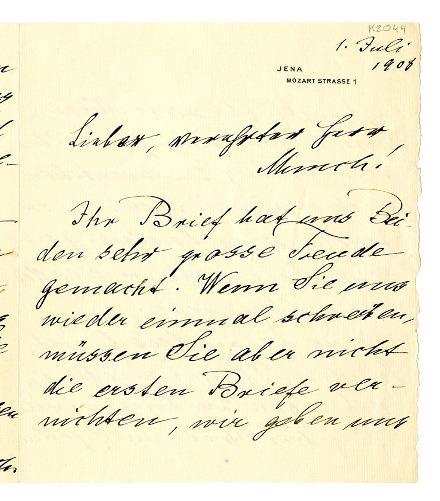 K2044
1. Juli
1908
JENA
MOZART STRASSE 1
Lieber, verehrter Herr
Munch!
Ihr Brief hat uns Bei-
den sehr grosse Freude
gemacht. Wenn Sie uns
wieder einmal schreiben,
müssen Sie aber nicht
die ersten Briefe ver-
nichten, wir geben uns